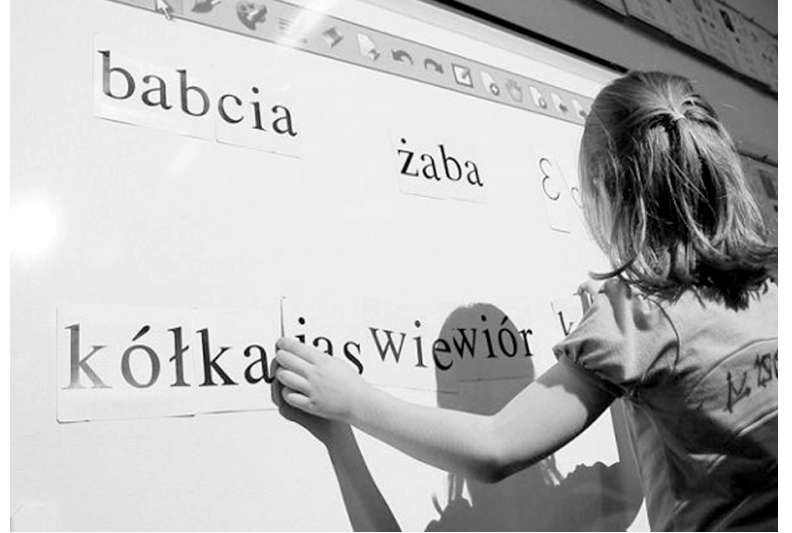 babcia
żaba
kółka
jas
wiewiór